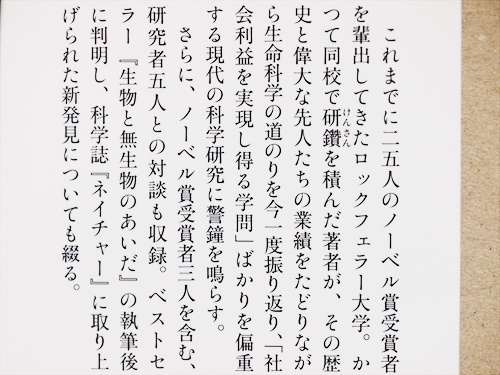 これまでに二五人のノーベル賞受賞者
を輩出してきたロックフェラー大学。か
つて同校で研鑽を積んだ著者が、その歴
けんさん
史と偉大な先人たちの業績をたどりなが
ら生命科学の道のりを今一度振り返り、「社
会利益を実現し得る学問」ばかりを偏重
する現代の科学研究に警鐘を鳴らす。
さらに、ノーベル賞受賞者三人を含む、
研究者五人との対談も収録。ベストセ
ラー『生物と無生物のあいだ』の執筆後
に判明し、科学誌『ネイチャー』に取り上
げられた新発見についても綴る。